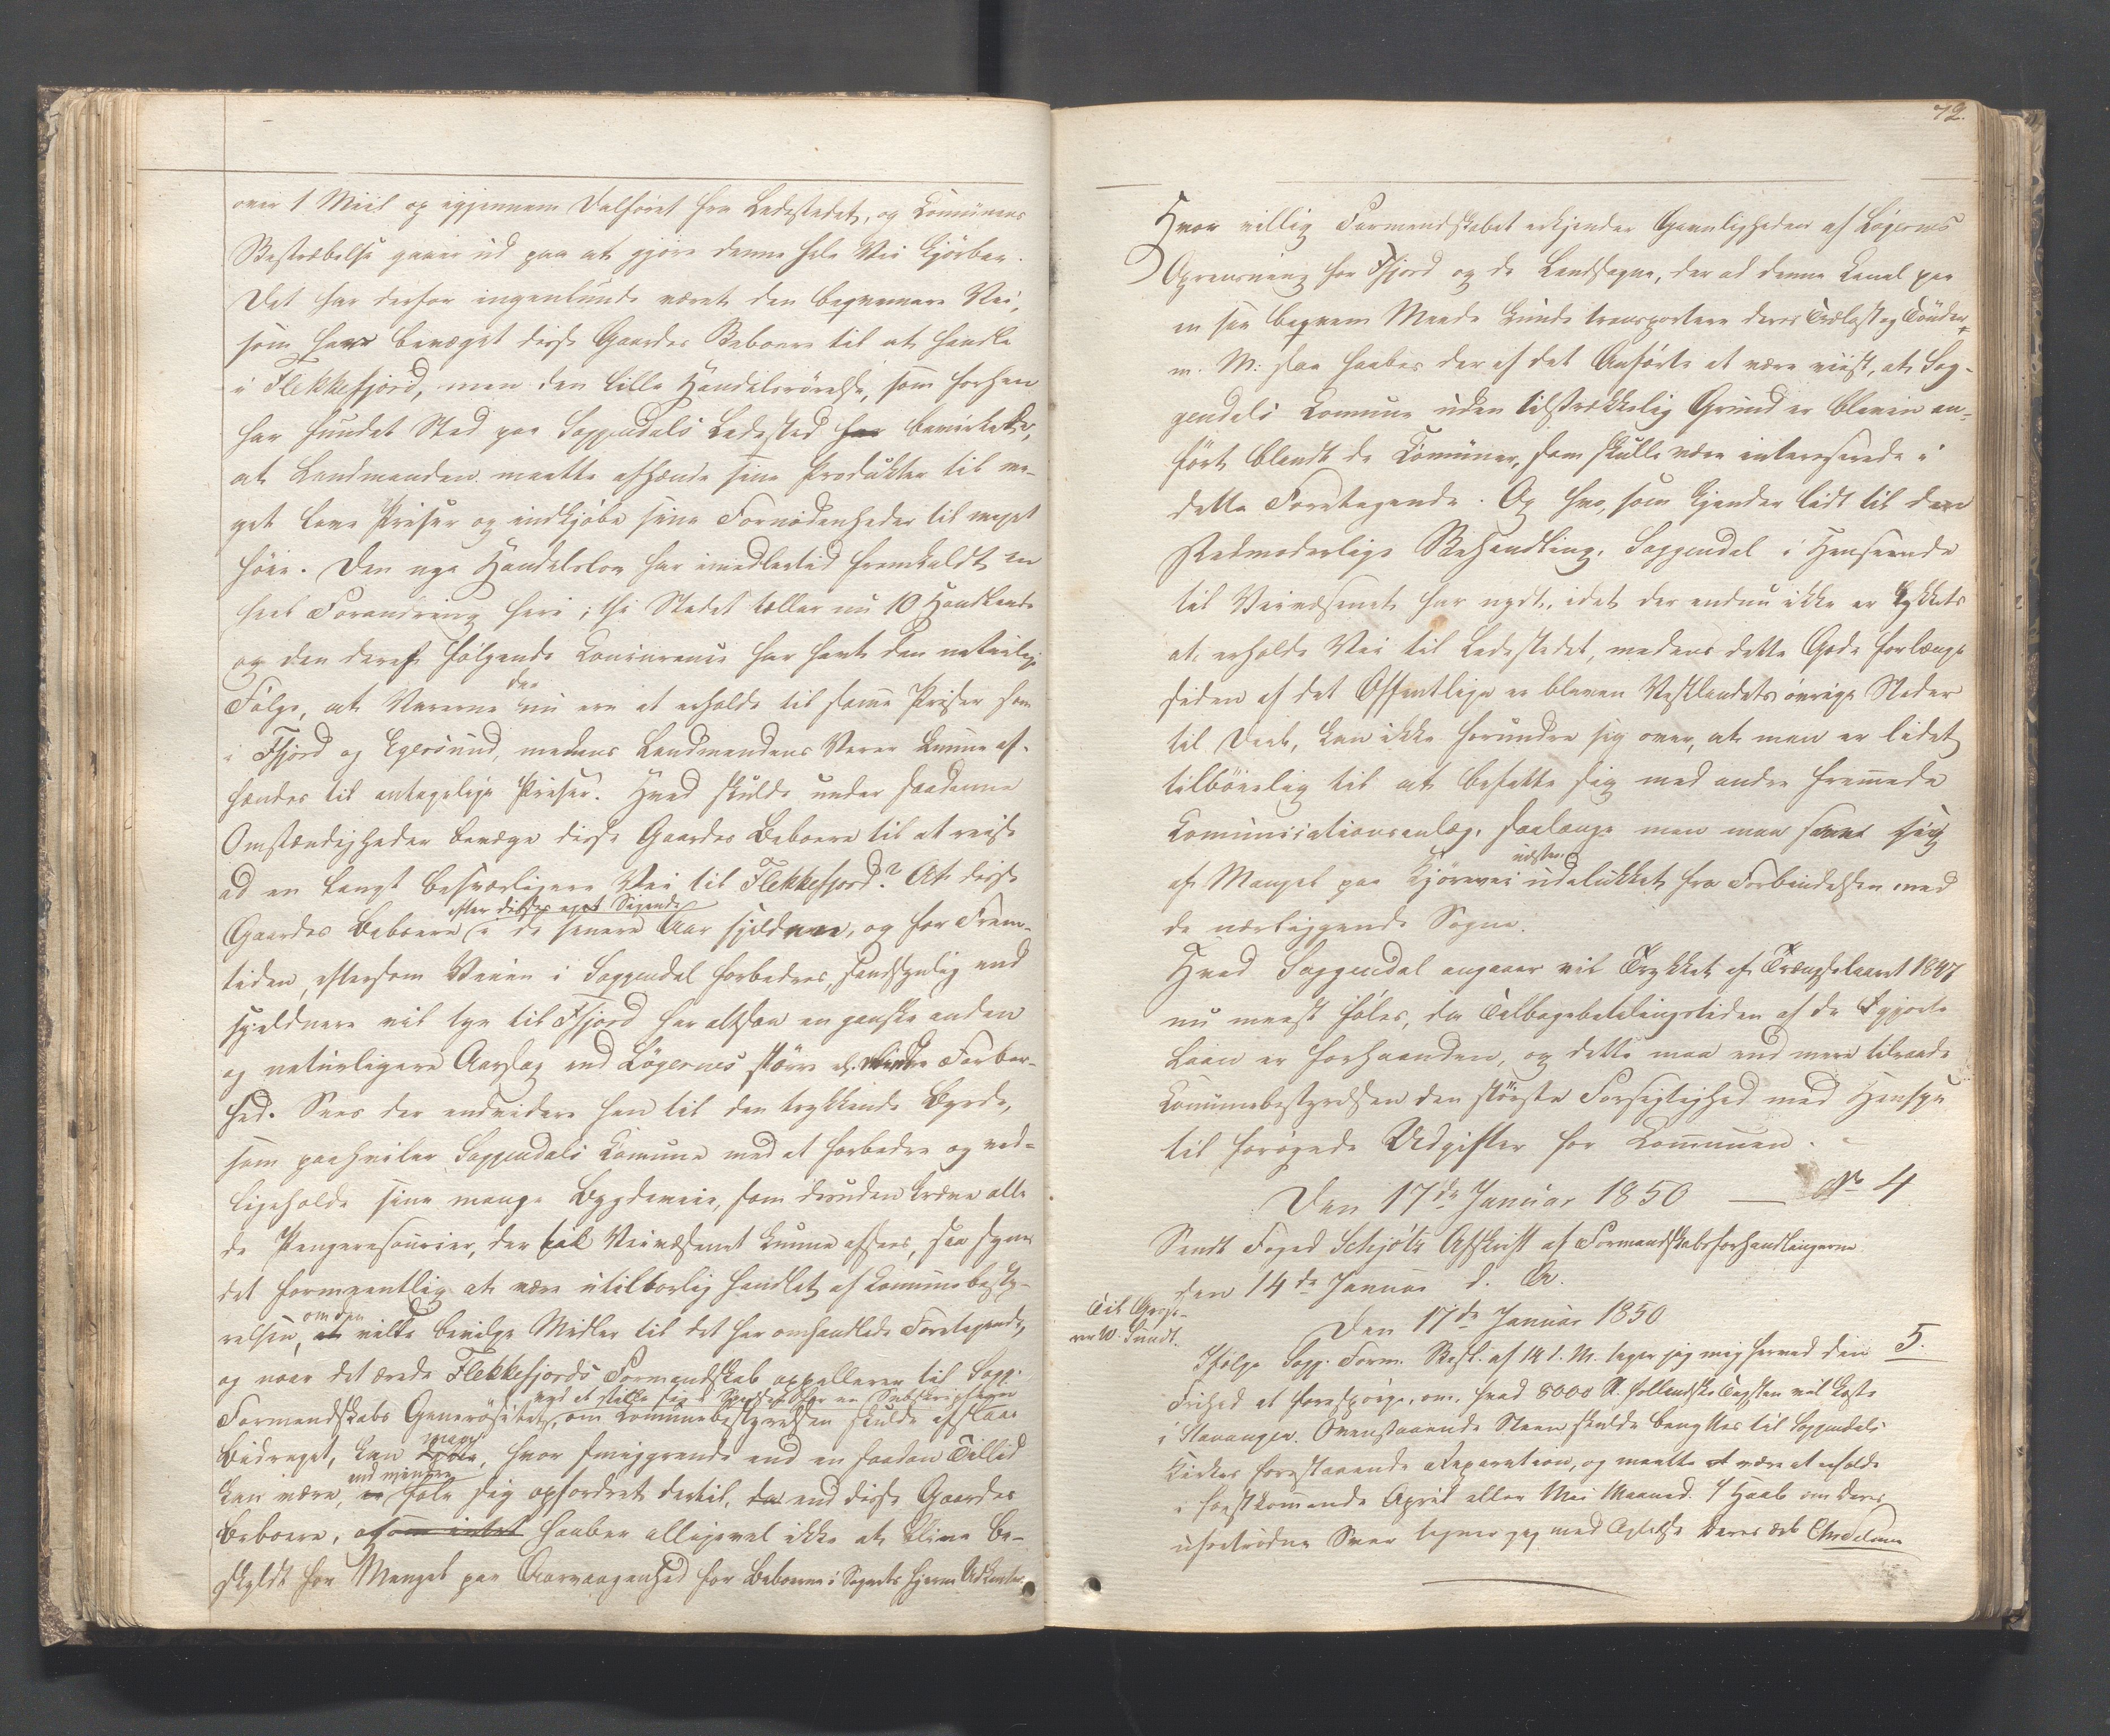 over 1 Miil op igjennem Dalføret fra Ladestedet, og Comunens
Bestræbelse gaaer ud paa at gjøre denne hele Vei kjørbar.
Det har derfor ingenlunde været den beqvemere Vei,
som have bevæget disse Gaardes Beboere til at handle
i Flekkefjord, men den lille Handelsrørelse, som forhen
har fundet Sted paa Soggendals Ladested har bevirkede,
at Landmanden maatte afhænde sine Produkter til me-
get lave Priser og indkjøbe sine Fornødenheder til meget
høie. Den nye Handelslov har imidlertid fremkaldt en
heel Forandring heri; thi Stedet tæller nu 10 Handlende
og den deraf følgende Concurence har havt den naturlige
Følge, at Varerne der nu ere at erholde til samme Priser som
i Ffjord og Egersund, medens Landmandens Varer kunne af-
hændes til antagelige Priser. Hvad skulde under saadanne
Omstændigheder bevæge disse Gaardes Beboere til at reise
ad en langt besværligere Vei til Flekkefjord? At disse
efter disses eget Sigende
Gaardes Beboere i de senere Aar sjeldnere, og for Frem-
tiden, eftersom Veien i Soggendal forbedres, sandsynlig end
sjeldnere vil tye til Ffjord har altsaa en ganske anden
og naturligere Aarsag end Løgernes større el. mindre Farbar-
hed. Sees der endvidere hen til den trykkende Byrde,
som paahviler Soggendals Comune med at forbedre og ved-
ligeholde sine mange Bygdeveie, som desuden kræve alle
de Pengeresourcer, der til Veivæsenet kunne afsees, saa synes
det formeentlig at være utilbørlig handlet af Comunebesty-
relsen, om den at vilde bevilge Midler til det her omhandlede Foretagende,
og naar det ærede Flekkefjords Formandskab appellerer til Sogg.
ved at stille sig i Spidsen for en Subscription
Formandskabs Generøsitet, om Comunebestyrelsen skulde afslaae
Bidraget, kan man, hvor smigrende end en saadan Tillid
kan være, end mindre føle sig opfordret dertil, da end disse Gaardes
Beboere, og som intet haaber alligevel ikke at blive be-
skyldt for Mangel paa Aarvaagenhed for Beboerne i Sognets fjerne Udkanter.
72.
Hvor villig Formandskabet erkjender Gavnligheden af Løgernes
Oprensning for Ffjord og de Landsogne, der ad denne Canal paa
en saa beqvem Maade kunde transportere deres Trælast og Tønder
m. M: saa haabes der af det Anførte at være viist, at Sog-
gendals Comune uden tilstrækkelig Grund er bleven an-
ført blandt de Comuner, som skulle være interesserede i
dette Foretagende. Og hvo, som kjender lidt til den
stedmoderlige Behandling, Soggendal i Henseende
til Veivæsenet har nydt, idet der endnu ikke er lykkets
at erholde Vei til Ladestedet, medens dette Gode forlængst
siden af det Offentlige er bleven Vestlandets øvrige Steder
til Deel, kan ikke forundre sig over, at man er lidet
tilbøielig til at befatte sig med andre fremmede
Comunicationsanlæg, saalænge man maa see sig
af Mangel paa Kjørevei næsten udelukket fra Forbindelsen med
de nærliggende Sogne.
Hvad Soggendal angaaer vil Trykket af Trængselsaaret 1847
nu meest føles, da Tilbagebetalingstiden af de gjorte
Laan er forhaanden, og dette maa end mere tilraade
Comunebestyrelsen den største Forsigtighed med Hensyn
til forøgede Udgifter for Comunen.
Den 17de Januar 1850 — No 4
Sendt Foged Schjøtz Afskrift af Formandskabsforhandlingerne
den 14de Januar d. A.
Den 17de Januar 1850
Til
W. Sundt.
5.
Ifølge Sogg. Form. Besl. af 14 d. M. tager jeg mig herved den
Frihed at forespørge, om, hvad 8000 St. hollandske Tagsten vil koste
i Stavanger. Ovenstaaende Steen skulde benyttes til Soggendals
Kirkes forestaaende Reparation, og maatte være at erholde
i førstkommende April eller Mai Maaned. I Haab om Deres
uforbrødne Svar tegner jeg med Agtelse Deres ærb.